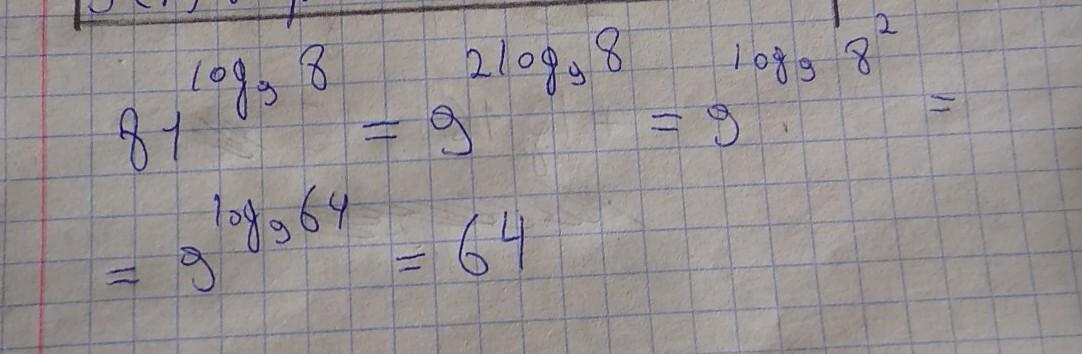 81^{log_9 8} = 9^{2 log_9 8} = 9^{log_9 8^2} =
= 9^{log_9 64} = 64